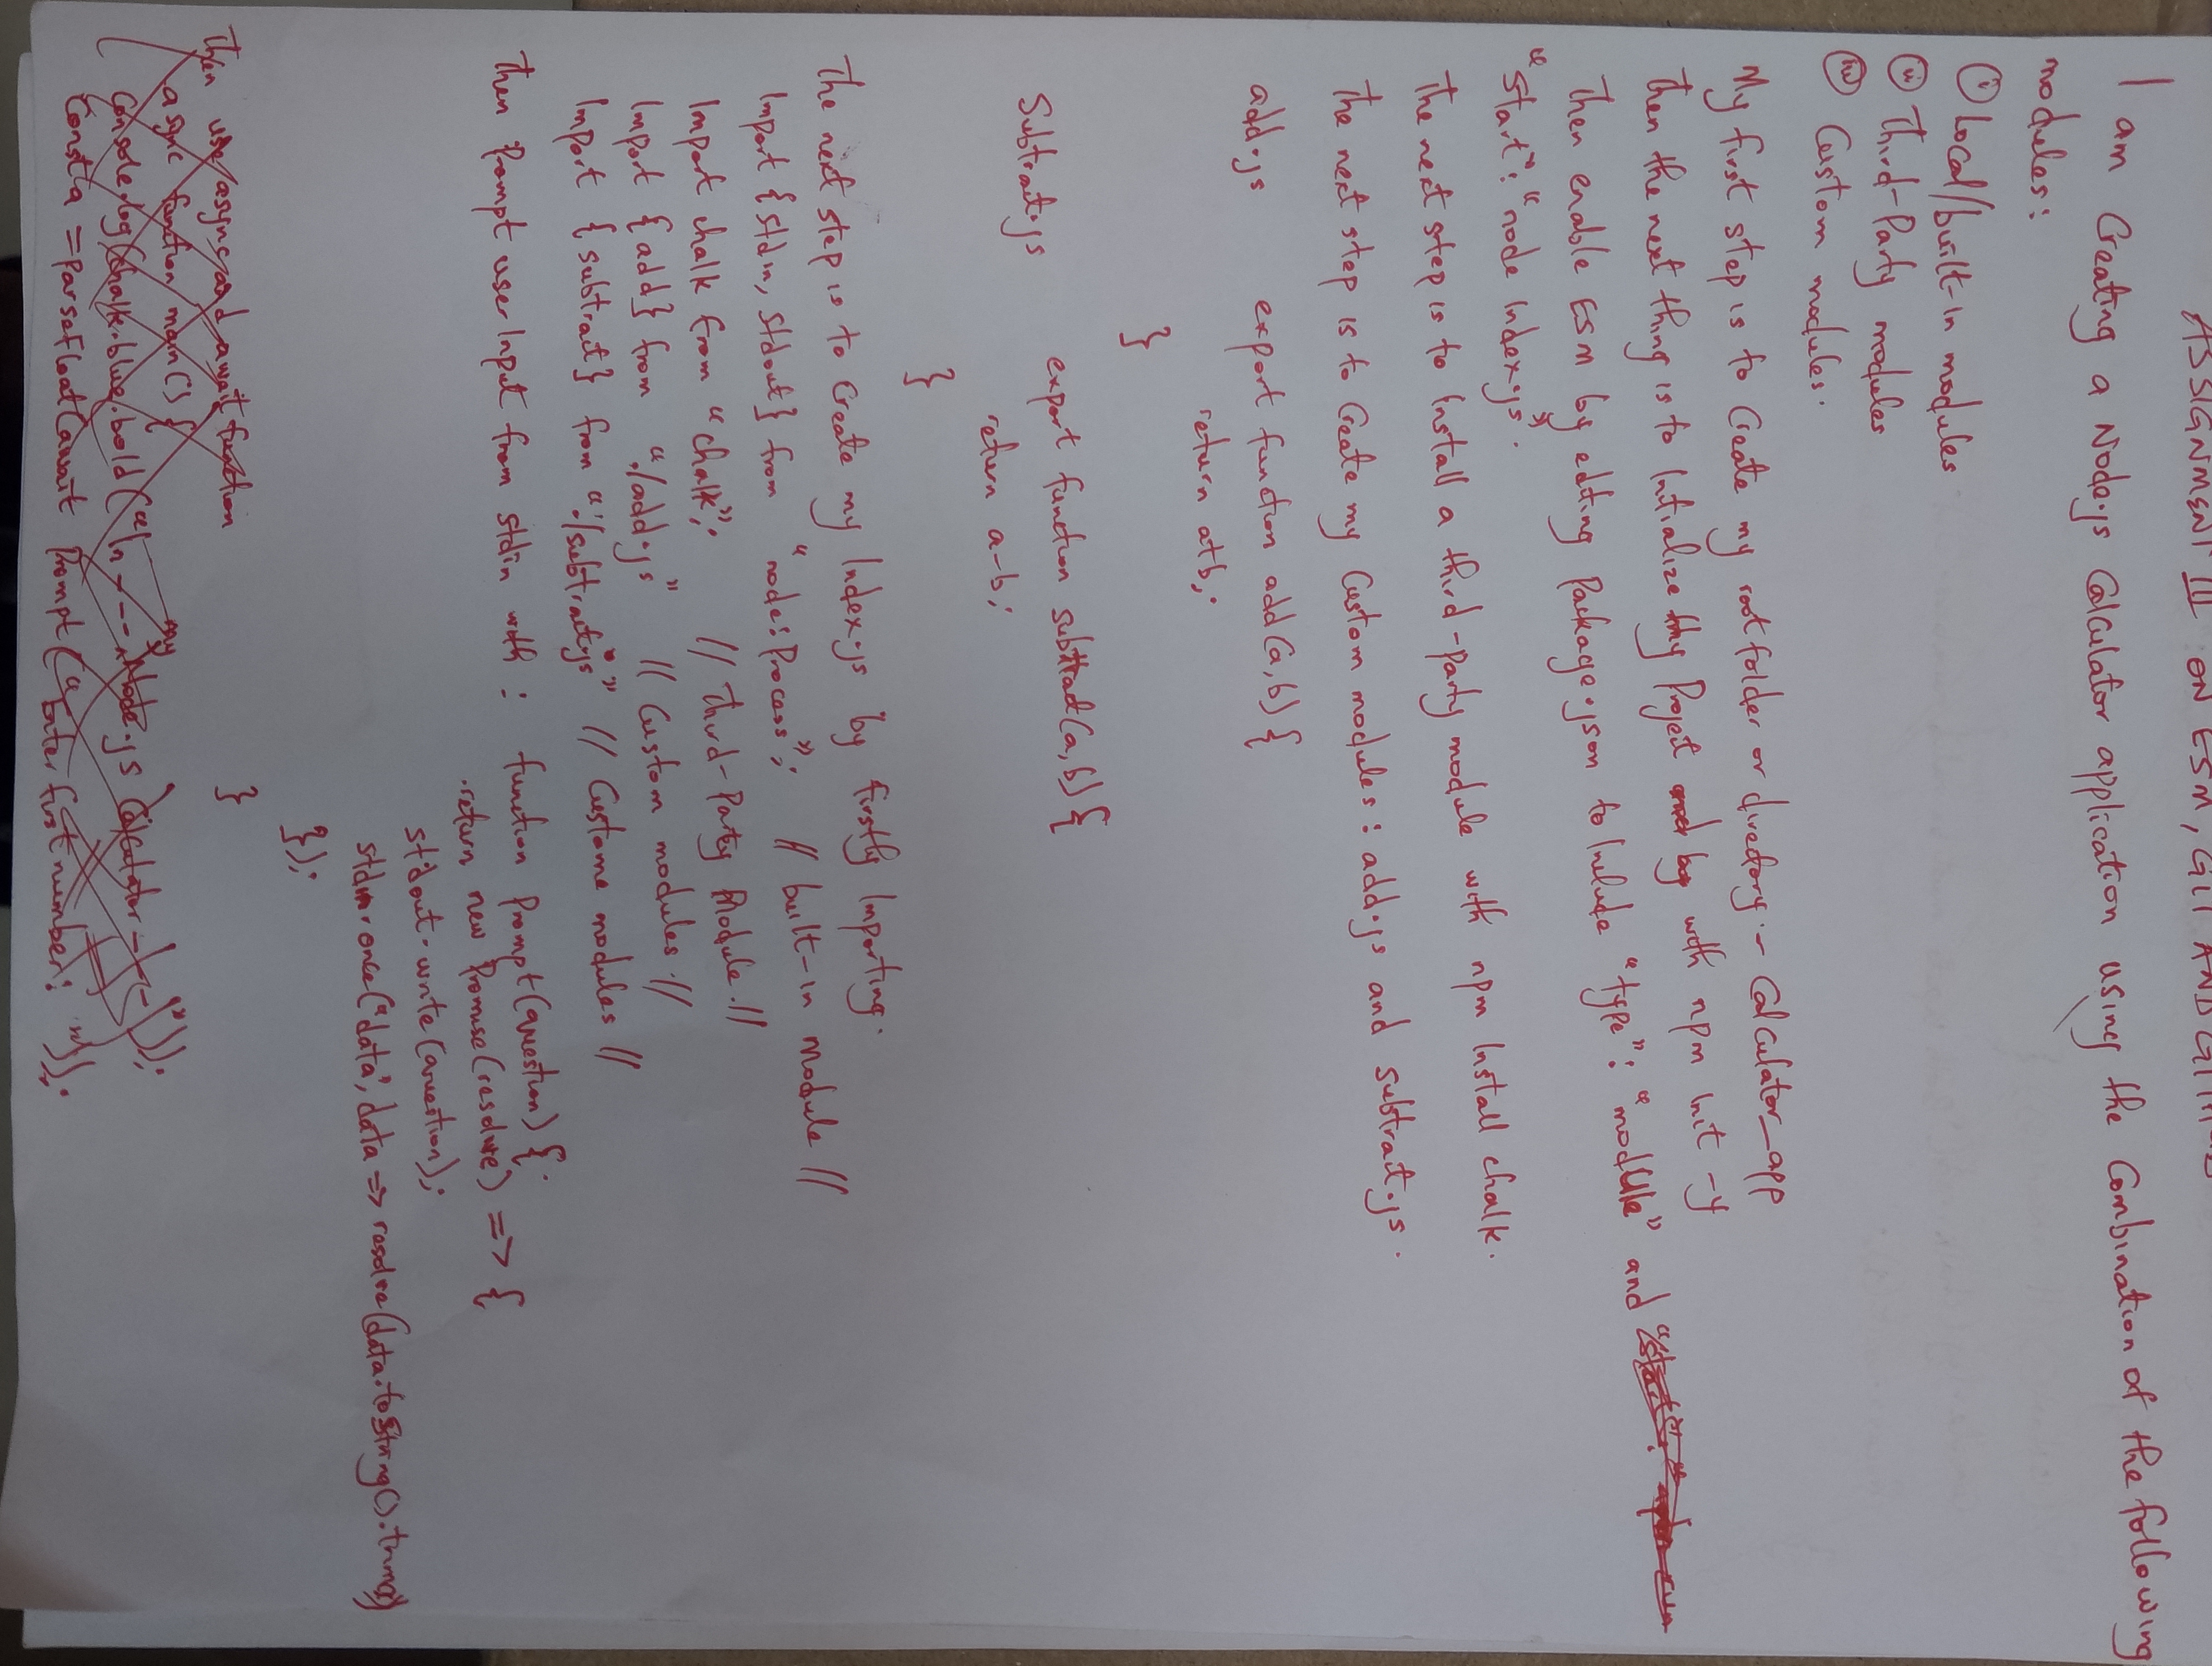 ASSIGNMENT III ON ESM, GIT AND
I am Creating a Node.js Calculator application using the Combination of the following
modules:
(i) Local/built-in modules
(ii) Third-Party modules
(iii) Custom modules.
My first step is to Create my root folder or directory:- Calculator_app
Then the next thing is to Initialize my Project by with npm init -y
Then enable ESM by editing Package.json to Include "type": "module" and
"Start": "node Index.js".
The next step is to Install a third-party module with npm Install chalk.
The next step is to Create my Custom modules: add.js and subtract.js.
add.js export function add(a,b) {
return a+b;
}
Subtract.js export function subtract(a,b) {
return a-b;
}
The next step is to Create my Index.js by firstly Importing.
Import {stdin, stdout} from "node:Process"; // built-in module //
Import chalk from "chalk"; // Third-Party Module //
Import {add} from "./add.js" // Custom modules //
Import {subtract} from "./subtract.js" // Custome modules //
Then Prompt user Input from stdin with: function Prompt(question) {
return new Promise(resolve) => {
stdout.write(question);
stdin.once("data", data => resolve(data.toString().trim())
});
}
Then use async and await function
async function main() {
Console.log(chalk.blue.bold("\n --- My Node.js Calculator ---"));
Const a = parseFloat(await Prompt("Enter first number: "));